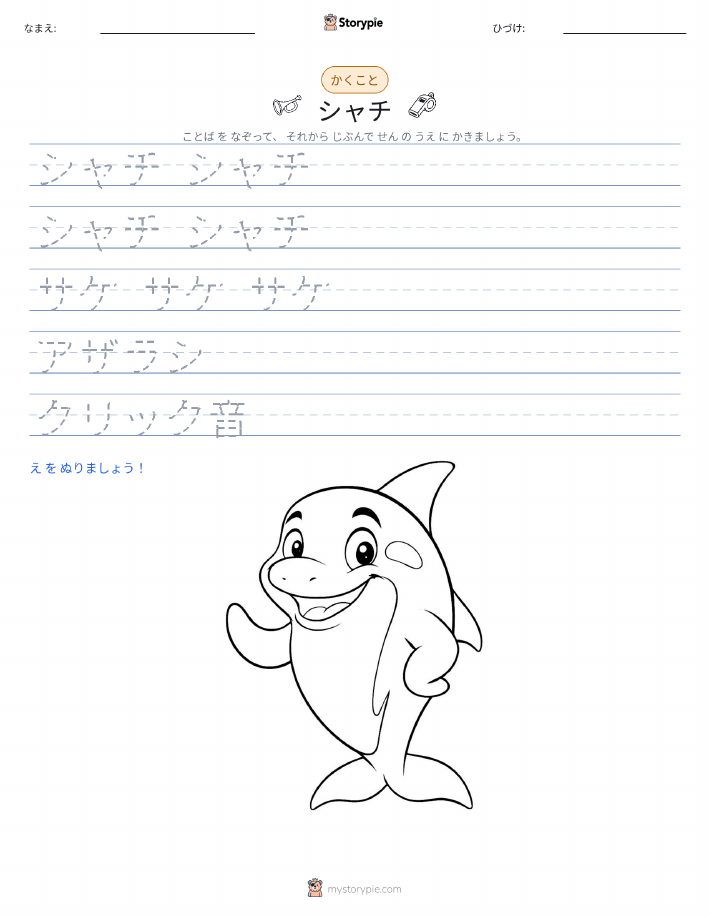 なまえ:
Storypie
ひづけ:
かくこと
シャチ
ことば を なぞって、 それから じぶんで せん の うえ に かきましょう。
シャチ シャチ
シャチ シャチ
サケ サケ サケ
アザラシ
クリック音
え を ぬりましょう！
mystorypie.com